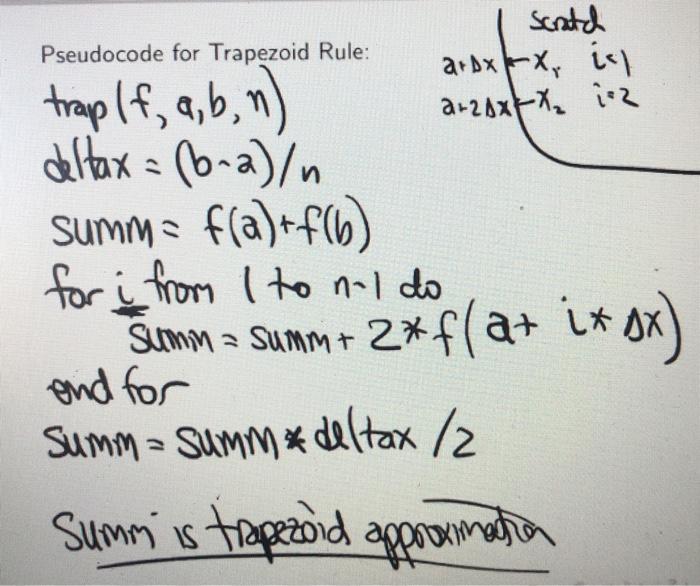 Pseudocode for Trapezoid Rule:
trap(f, a, b, n)
deltax = (b-a)/n
summ = f(a)+f(b)
for i from 1 to n-1 do
summ = summ + 2*f(a+ i* Δx)
end for
summ = summ * deltax /2
Summ is trapezoid approximation
scratch
a+Δx x₁ i=1
a+2Δx x₂ i=2